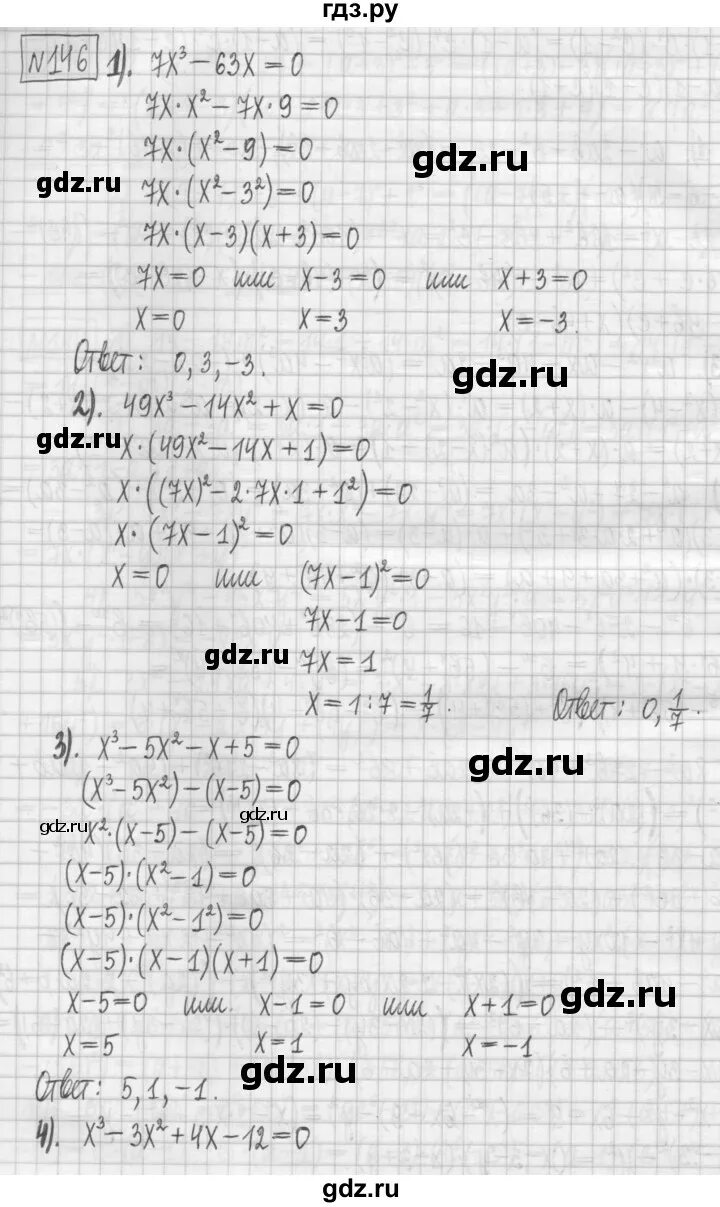 гдз.ру
№146 1). 7x³ − 63x = 0
7x·x² − 7x·9 = 0
7x·(x² − 9) = 0
gdz.ru
gdz.ru 7x·(x² − 3²) = 0
7x·(x−3)(x+3) = 0
7x = 0 или x−3 = 0 или x+3 = 0
x = 0 x = 3 x = −3.
Ответ: 0, 3, −3.
gdz.ru
2). 49x³ − 14x² + x = 0
gdz.ru x·(49x² − 14x + 1) = 0
x·((7x)² − 2·7x·1 + 1²) = 0
x·(7x − 1)² = 0
x = 0 или (7x−1)² = 0
7x − 1 = 0
gdz.ru 7x = 1
x = 1 : 7 = 1/7. Ответ: 0, 1/7.
3). x³ − 5x² − x + 5 = 0
gdz.ru
(x³ − 5x²) − (x−5) = 0
gdz.ru
gdz.ru x²·(x−5) − (x−5) = 0
(x−5)·(x²−1) = 0
(x−5)·(x²−1²) = 0
(x−5)·(x−1)(x+1) = 0
x−5=0 или x−1=0 или x+1=0 gdz.ru
x = 5 x = 1 x = −1
gdz.ru
Ответ: 5, 1, −1.
4). x³ − 3x² + 4x − 12 = 0
gdz.ru